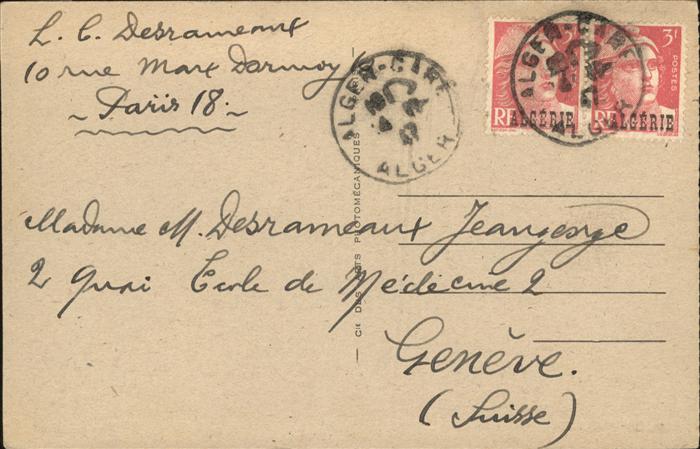 L. C. Desrameaux
10 rue Marx Dormoy
Paris 18.
ALGER-GARE
ALGER
ALGER-GARE
ALGER
3F
POSTES
RF ALGÉRIE
RF ALGÉRIE
Madame M. Desrameaux Jeangeorge
2 Quai École de Médecine 2
Genève.
(Suisse)
— Cie DES ARTS PHOTOMÉCANIQUES